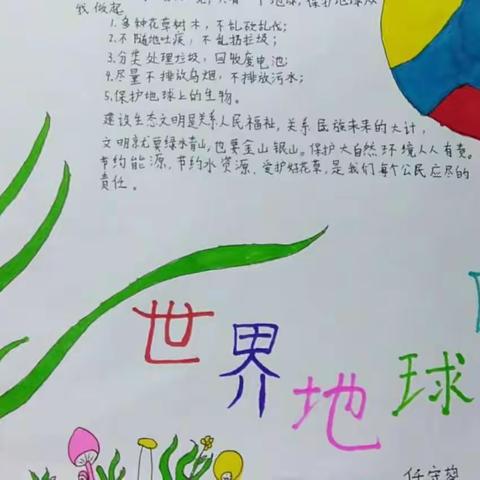 个地球,保护地球从
我做起
1.多种花草树木,不乱砍乱伐;
2.不随地吐痰,不乱扔垃圾;
3.分类处理垃圾,回收废电池;
4.尽量不排放乌烟,不排放污水;
5.保护地球上的生物。
建设生态文明是关系人民福祉,关系民族未来的大计,
文明就要绿水青山,也要金山银山。保护大自然环境人人有责。
节约能源、节约水资源、爱护好花草,是我们每个公民应尽的
责任。
世界
地球
任